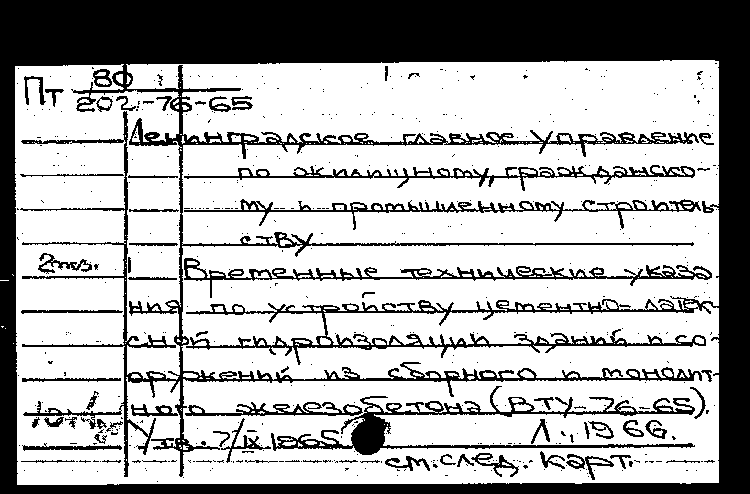 Пт 80
202-76-65
Ленинградское главное управление
по жилищному, гражданско-
му и промышленному строитель-
ству
2 экз. Временные технические указа
ния по устройству цементно-латек-
сной гидроизоляции зданий и со-
оружений из сборного и монолит-
ного железобетона (ВТУ-76-65).
Утв. 7/IX 1965 Л., 1966.
см. след. карт.